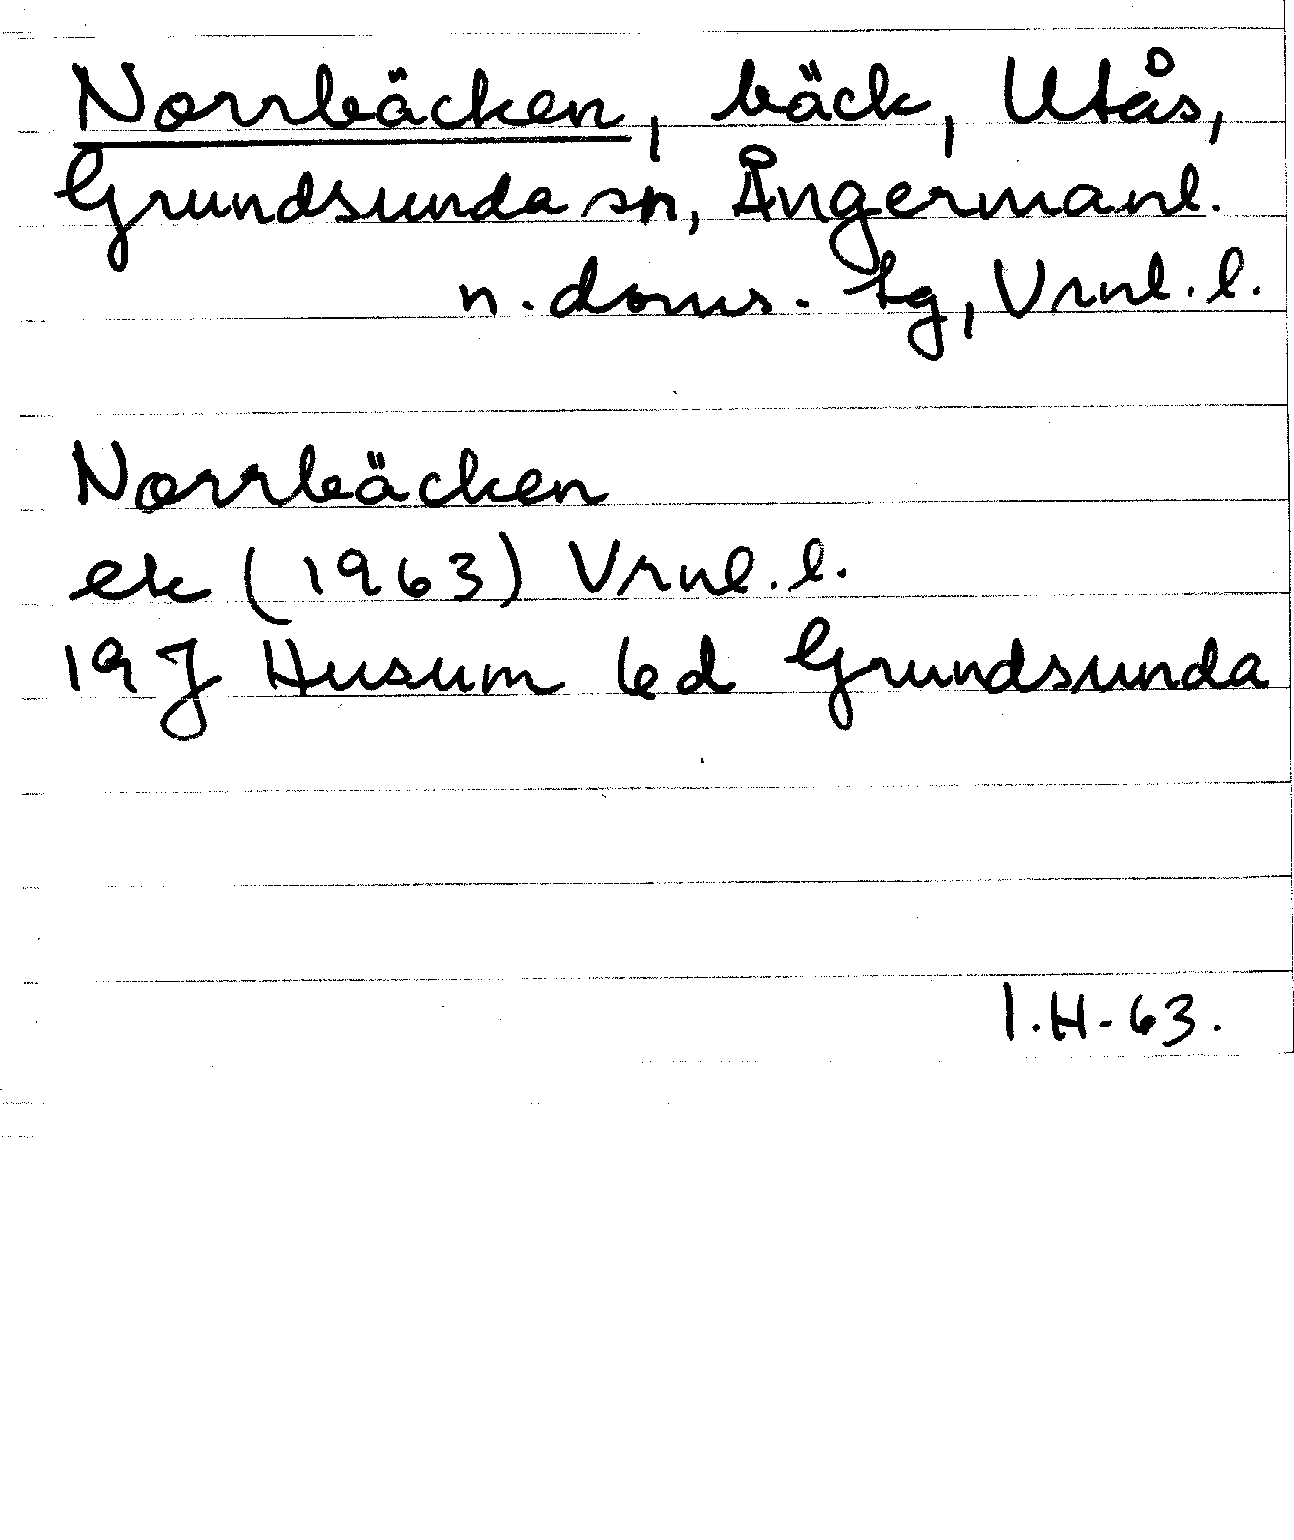 Norrbäcken, bäck, Utås,
Grundsunda sn, Ångermanl.
n. doms. tg, Vrnl. l.
Norrbäcken
ek (1963) Vrnl. l.
19 J Husum 6d Grundsunda
I.H-63.